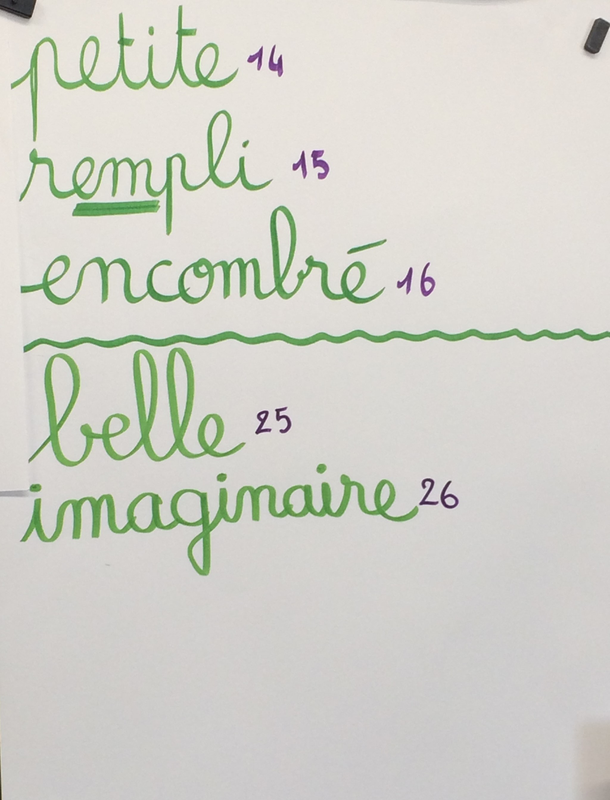 petite 14
rempli 15
encombré 16
belle 25
imaginaire 26